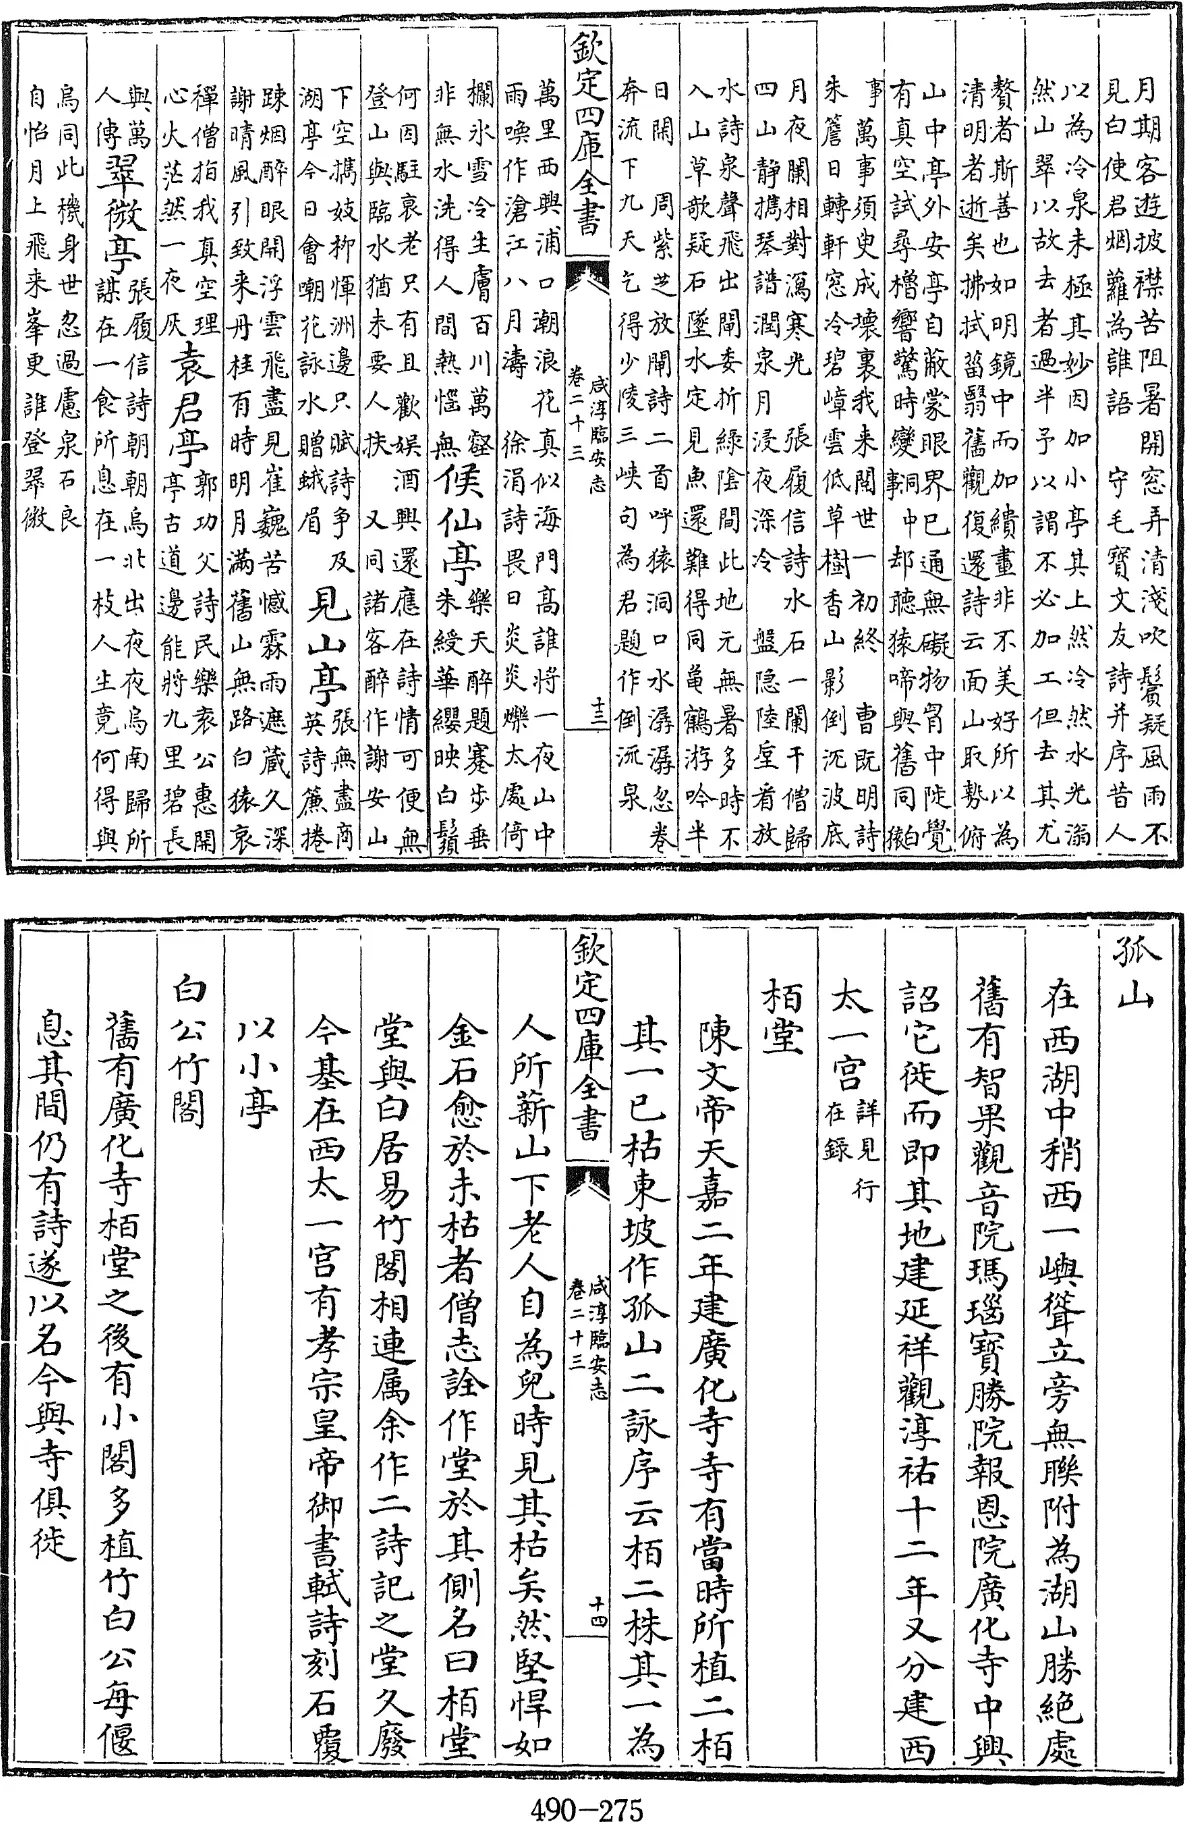 月期客遊披襟苦阻暑開窓弄清淺吹鬢疑風雨不
見白使君烟蘿為誰語　守毛寶文友詩并序昔人
以為冷泉未極其妙因加小亭其上然冷然水光溺
然山翠以故去者過半予以謂不必加工但去其尤
贅者斯善也如明鏡中而加繢畫非不美好所以為
清明者逝矣拂拭菑翳舊觀復還詩云面山取勢俯
山中亭外安亭自蔽蒙眼界已通無礙物胷中陡覺
有真空試尋櫓響驚時變洞中事却聽猿啼與舊同白猿
事萬事須臾成壞裏我来閱世一初終　曹既明詩
朱簷日轉軒窓冷碧嶂雲低草樹香山影倒沉波底
月夜闌相對瀉寒光　張履信詩水石一闌干僧歸
四山靜擕琴譜潤泉月浸夜深冷　盤隐陸壑看放
水詩泉聲飛出閘委折綠陰間此地元無暑多時不
入山草歌疑石墜水定見魚還難得同亀鶴游吟半
日閒　周紫芝放閘詩二首呼猿洞口水潺潺忽卷
奔流下九天乞得少陵三峡句為君題作倒流泉
欽定四庫全書
咸淳臨安志
卷二十三
十三
萬里西興浦口潮浪花真似海門高誰將一夜山中
雨喚作滄江八月濤　徐涓詩畏日炎炎爍太處倚
欄氷雪冷生膚百川萬壑
非無水洗得人間熱惱無
候仙亭
樂天醉題蹇步垂
朱綬華纓映白鬚
何因駐衰老只有且歡娱酒興還應在詩情可便無
登山與臨水猶未要人扶　又同諸客醉作謝安山
下空擕妓柳惲洲邊只賦詩争及
湖亭今日會嘲花詠水贈蛾眉
見山亭
張無盡商
英詩簾捲
踈烟醉眼開浮雲飛盡見崔巍苦憾霖雨遮蔵久深
謝晴風引致来丹桂有時明月滿舊山無路白猿哀
禪僧指我真空理
心火茫然一夜灰
袁君亭
郭功父詩民樂袁公惠開
亭古道邊能將九里碧長
與萬
人傳
翠微亭
張履信詩朝朝烏北出夜夜烏南歸所
謀在一食所息在一枝人生竟何得與
烏同此機身世忽過慮泉石良
自怡月上飛来峯更誰登翠微
孤山
在西湖中稍西一嶼聳立旁無聯附為湖山勝絶處
舊有智果觀音院瑪瑙寶勝院報恩院廣化寺中興
詔它徙而即其地建延祥觀淳祐十二年又分建西
太一宫詳見行
在録
栢堂
陳文帝天嘉二年建廣化寺寺有當時所植二栢
其一已枯東坡作孤山二詠序云栢二株其一為
欽定四庫全書
咸淳臨安志
卷二十三
十四
人所薪山下老人自為兒時見其枯矣然堅悍如
金石愈於未枯者僧志詮作堂於其側名曰栢堂
堂與白居易竹閣相連属余作二詩記之堂久廢
今基在西太一宫有孝宗皇帝御書軾詩刻石覆
以小亭
白公竹閣
舊有廣化寺栢堂之後有小閣多植竹白公每偃
息其間仍有詩遂以名今與寺俱徙
490-275